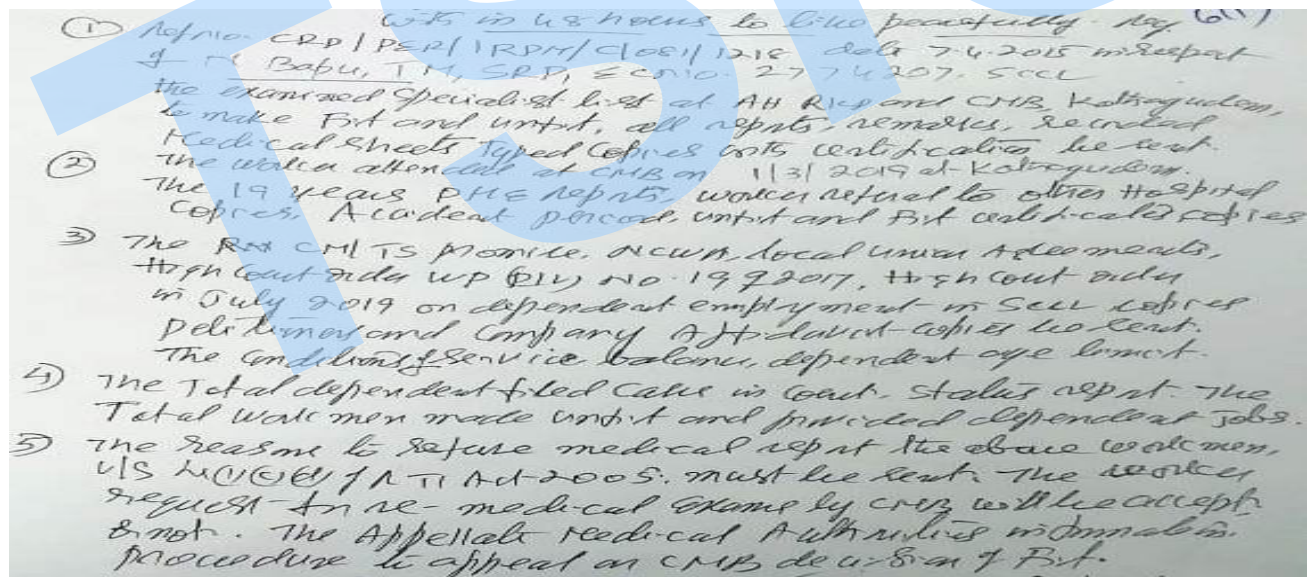 with in 48 hours to live peacefully. reg 6(1)
① Ref no. CRP/PER/IRPM/C/081/1218 date 7.4.2015 in respect
of M Babu, TM, SRP, E C no. 2774207. SCCL
the examined Specialist list at AH RKP and CMB, Kothagudem,
to make Fit and unfit, all reports, remarks, recorded
Medical sheets Typed Copies with certification be sent.
② The worker attended at CMB on 1/3/2019 at Kothagudem.
The 19 years PME reports, worker referal to other Hospital
copies, Accident period, unfit and Fit certificates copies
③ The CM TS promise, NCWA, local union Agreements,
High Court order WP (PIL) No. 2017, High Court order
in July 2019 on dependent employment in SCCL copies
Petitioner and Company Affidavit copies be sent.
The conditions of service balance, dependent age limit.
4) The Total dependent filed Case in Court. Status report. The
Total work men made unfit and provided dependent Jobs.
5) The reasons to refuse medical report the above work men,
U/S of RTI Act 2005. must be sent. The worker
request for re-medical Exame by CMB will be accept
or not. The Appellate Medical Authorities information.
Procedure to appeal on CMB decision of Fit.